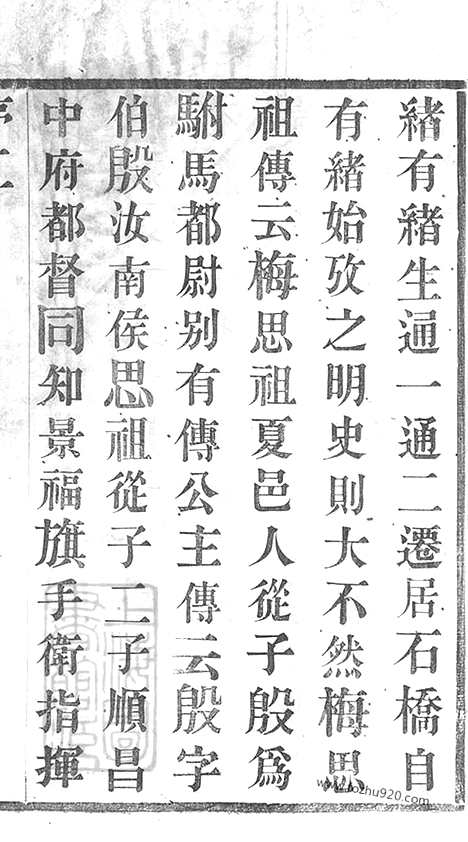 緒有緒生通一通二遷居石橋自
有緒始攷之明史則大不然梅思
祖傳云梅思祖夏邑人從子殷爲
駙馬都尉别有傳公主傳云殷字
伯殷汝南侯思祖從子二子順昌
中府都督同知景福旗手衛指揮
www.tozhu920.com